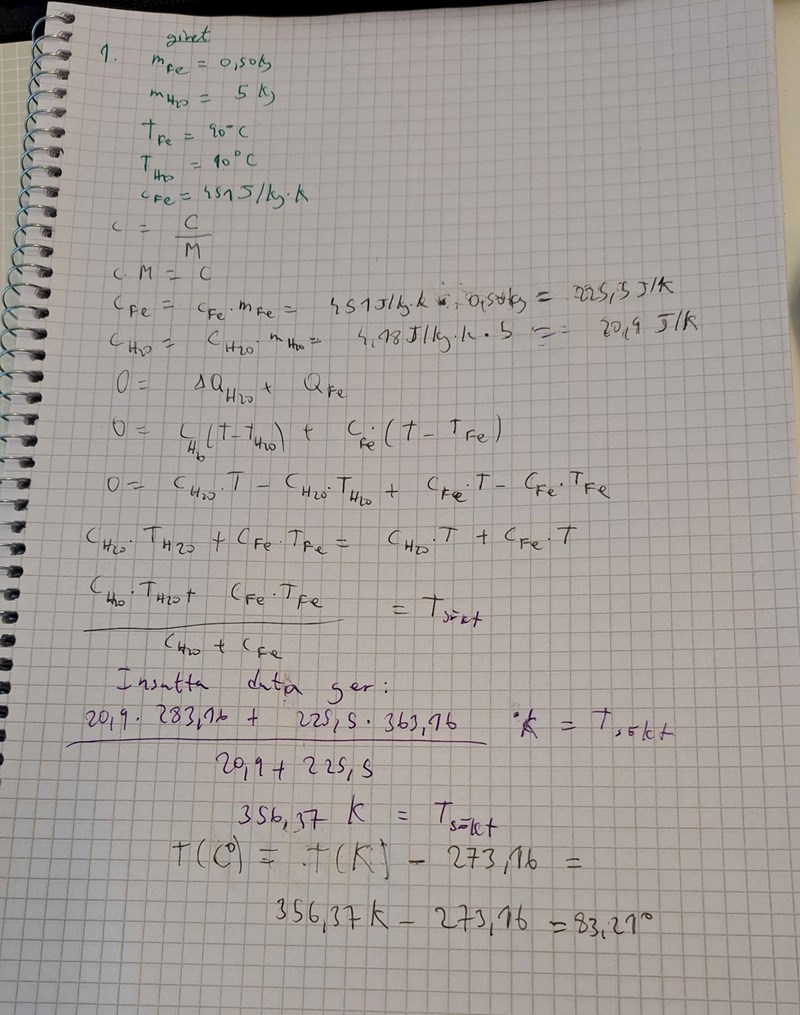 givet
1. m_Fe = 0,50kg
m_H2O = 5 kg
T_Fe = 90°C
T_H2O = 10°C
c_Fe = 451 J/kg·K
c = C/M
c·M = C
C_Fe = c_Fe·m_Fe = 451 J/kg·K · 0,50kg = 225,5 J/K
C_H2O = C_H2O·m_H2O = 4,18 J/kg·K · 5 = 20,9 J/K
0 = ΔQ_H2O + Q_Fe
0 = C_H2O(T-T_H2O) + C_Fe·(T-T_Fe)
0 = C_H2O·T - C_H2O·T_H2O + C_Fe·T - C_Fe·T_Fe
C_H2O·T_H2O + C_Fe·T_Fe = C_H2O·T + C_Fe·T
C_H2O·T_H2O + C_Fe·T_Fe = T_sökt
C_H2O + C_Fe
Insatta data ger:
20,9·283,16 + 225,5·363,16 K = T_sökt
20,9 + 225,5
356,37 K = T_sökt
T(C°) = T(K) - 273,16 =
356,37K - 273,16 = 83,21°